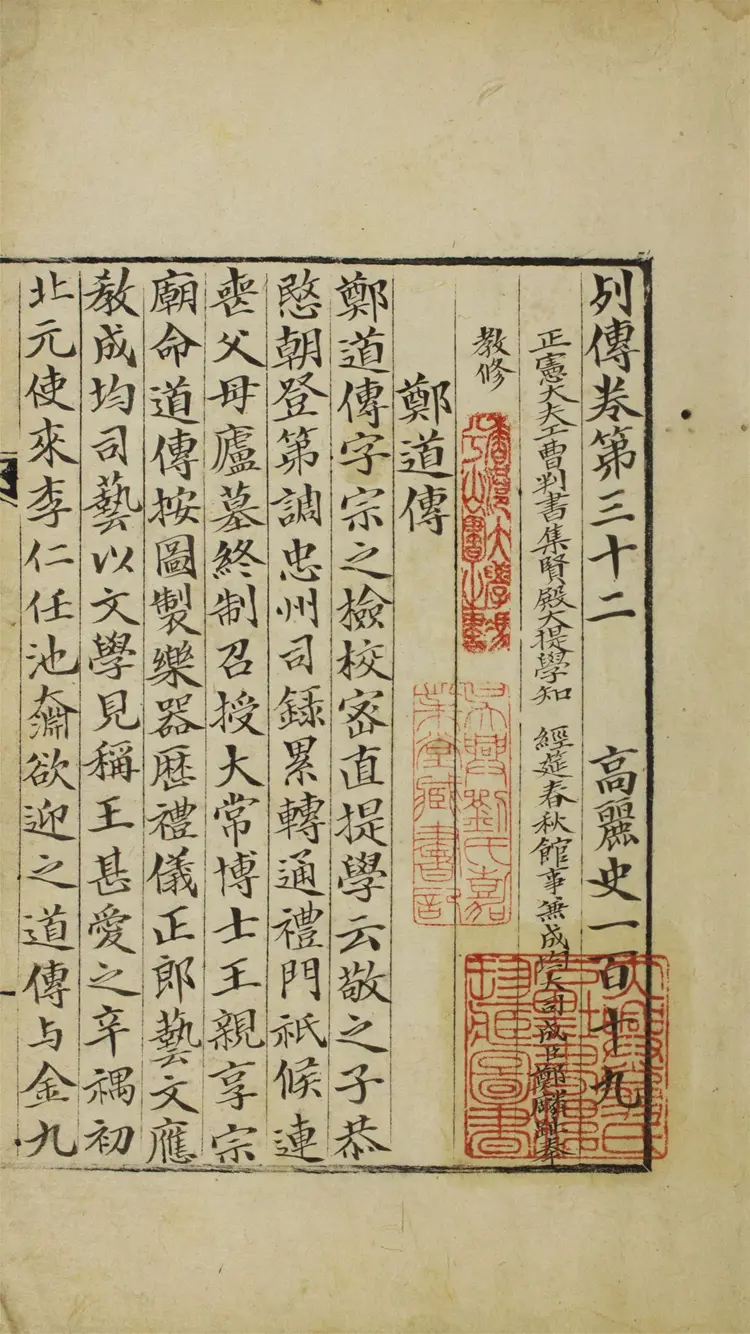 列傳卷第三十二 高麗史一百十九
正憲大夫工曹判書集賢殿大提學知 經筵春秋館事兼成均大司成臣鄭麟趾奉
教修
鄭道傳
鄭道傳字宗之檢校密直提學云敬之子恭
愍朝登第調忠州司錄累轉通禮門祗候連
喪父母廬墓終制召授大常博士王親享宗
廟命道傳按圖製樂器歷禮儀正郎藝文應
教成均司藝以文學見稱王甚愛之辛禑初
北元使來李仁任池奫欲迎之道傳与金九
吳興劉氏嘉
業堂藏書記